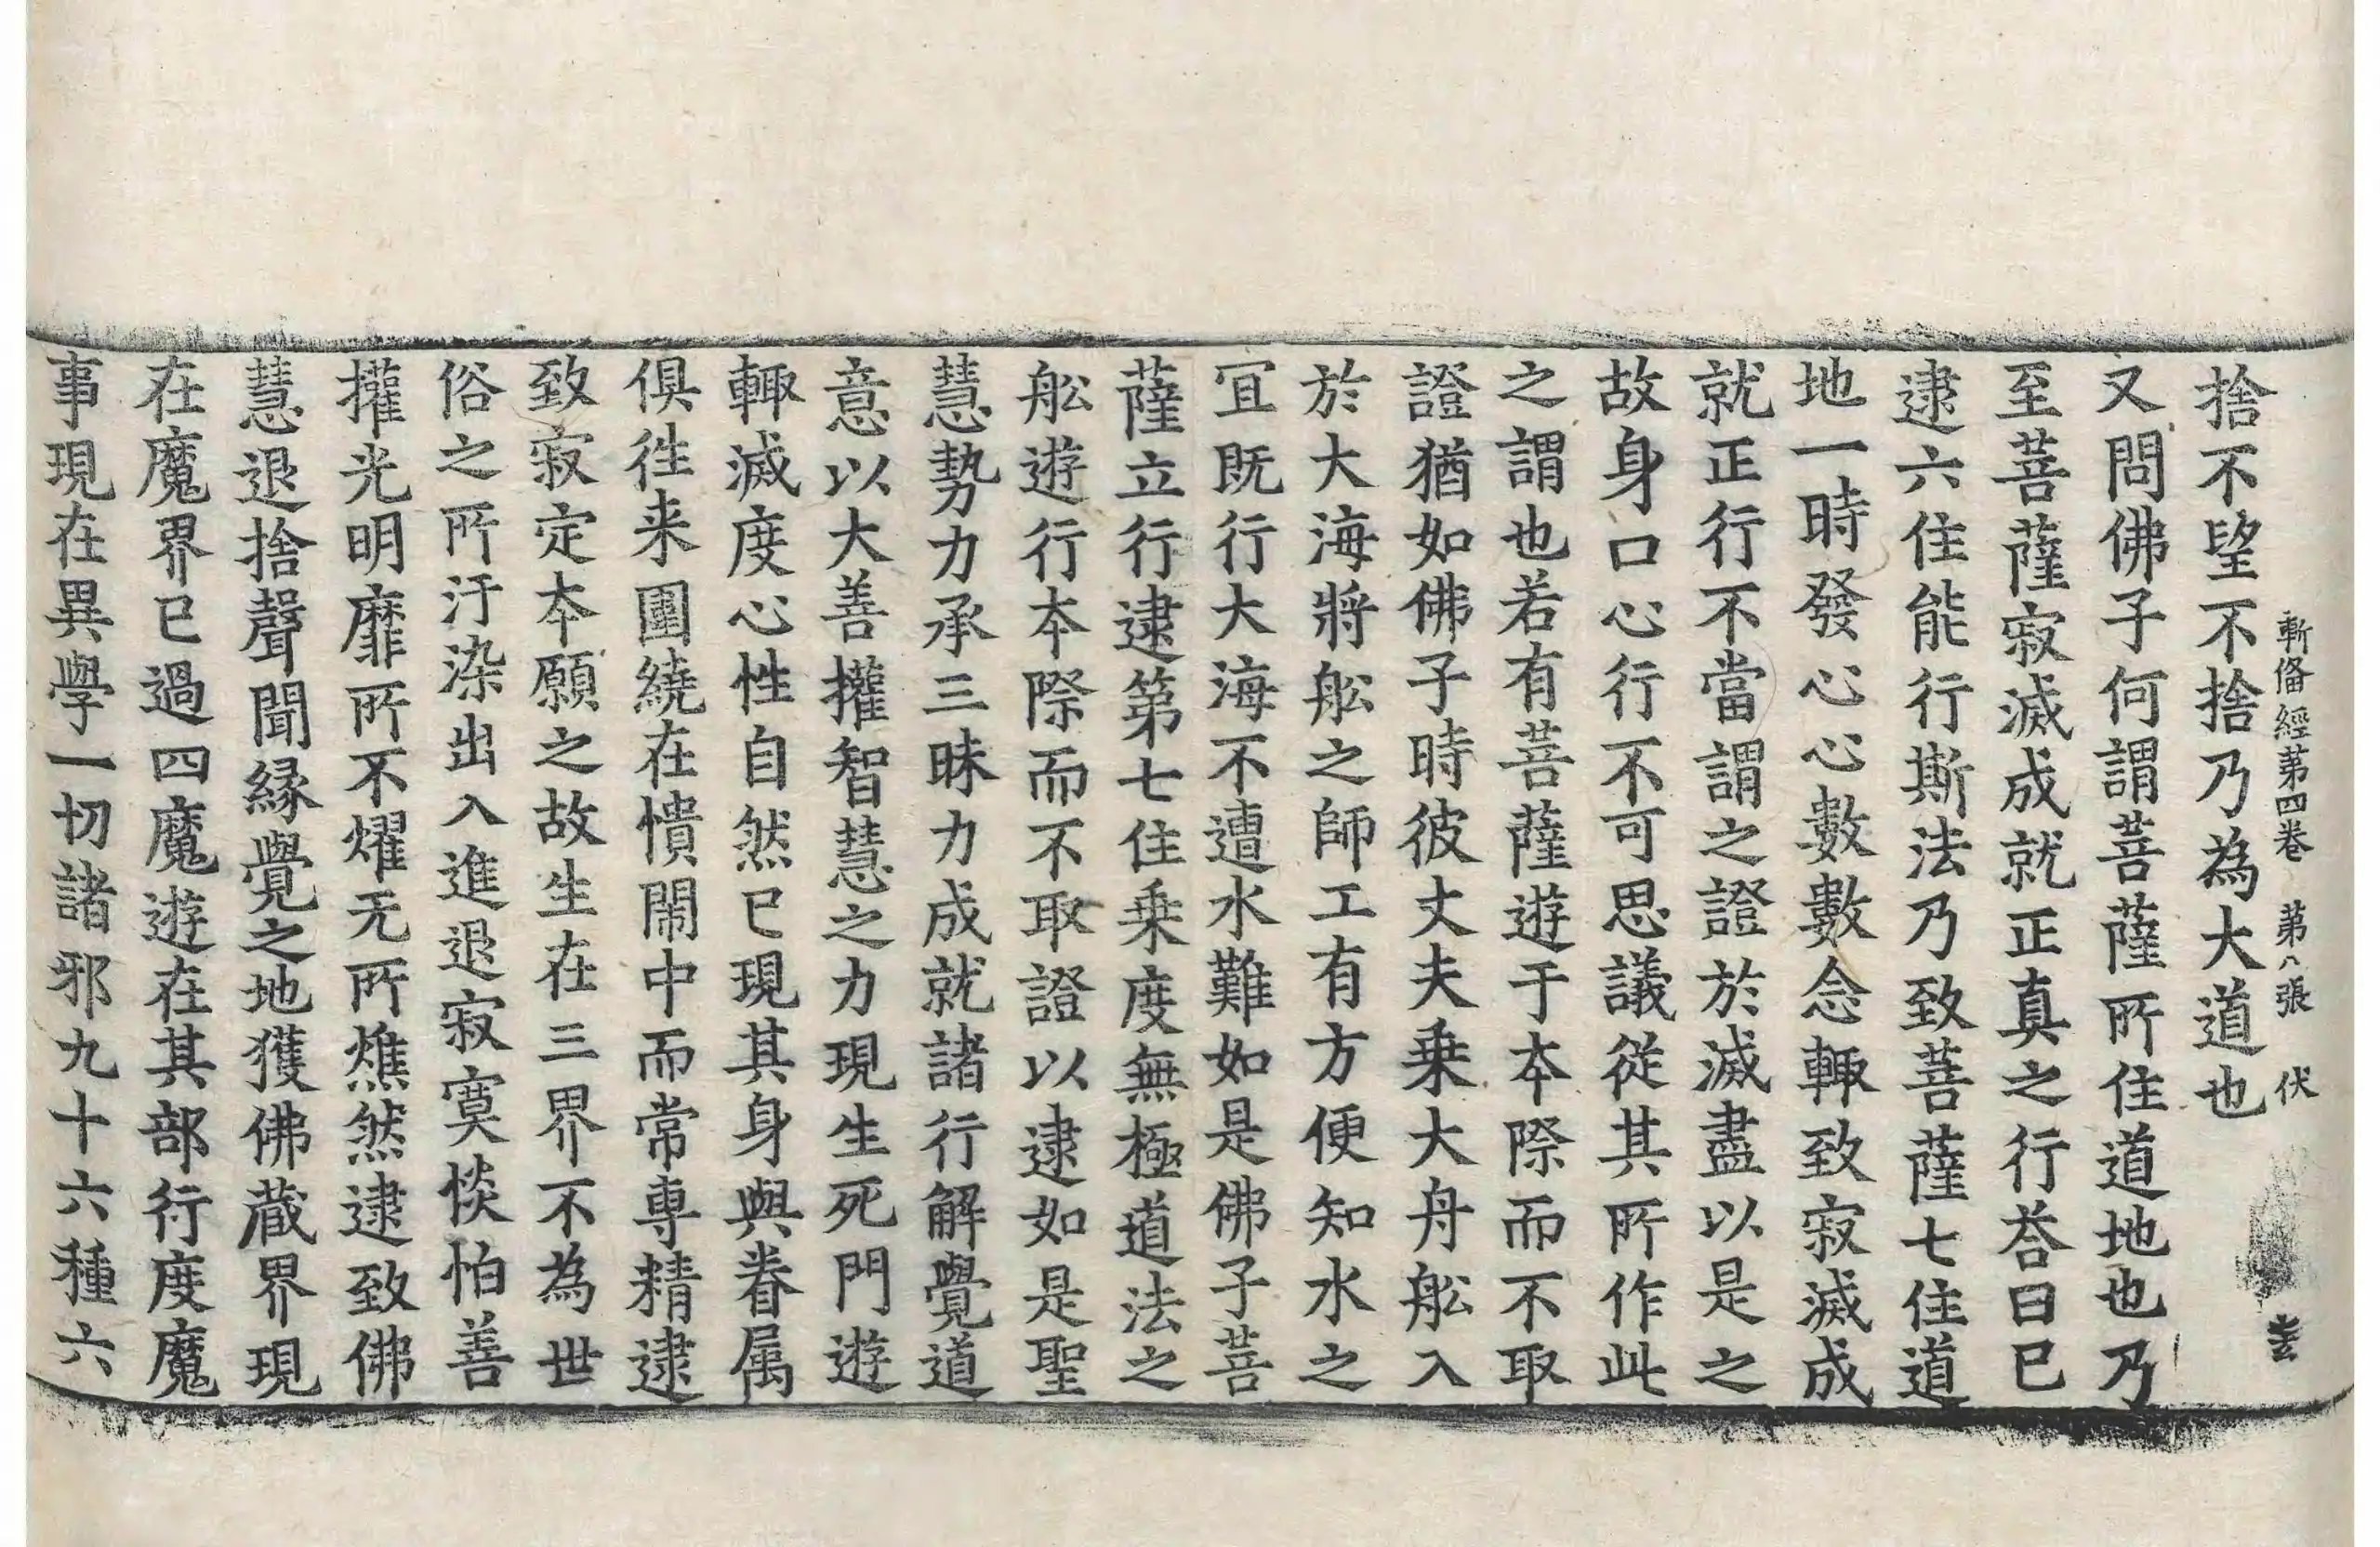 漸俻經第四卷 第八張 伏
捨不望不捨乃為大道也
又問佛子何謂菩薩所住道地也乃
至菩薩寂滅成就正真之行荅曰已
逮六住能行斯法乃致菩薩七住道
地一時發心心數數念輙致寂滅成
就正行不當謂之證於滅盡以是之
故身口心行不可思議從其所作此
之謂也若有菩薩遊于本際而不取
證猶如佛子時彼丈夫乗大舟舩入
於大海將舩之師工有方便知水之
宜既行大海不遭水難如是佛子菩
薩立行逮第七住乗度無極道法之
舩遊行本際而不取證以逮如是聖
慧勢力承三昧力成就諸行解覺道
意以大善權智慧之力現生死門遊
輙滅度心性自然已現其身與眷属
俱徃来圍繞在憒閙中而常專精逮
致寂定本願之故生在三界不為世
俗之所汙染出入進退寂寞惔怕善
權光明靡所不燿无所燋然逮致佛
慧退捨聲聞縁覺之地獲佛蔵界現
在魔界已過四魔遊在其部行度魔
事現在異學一切諸邪九十六種六